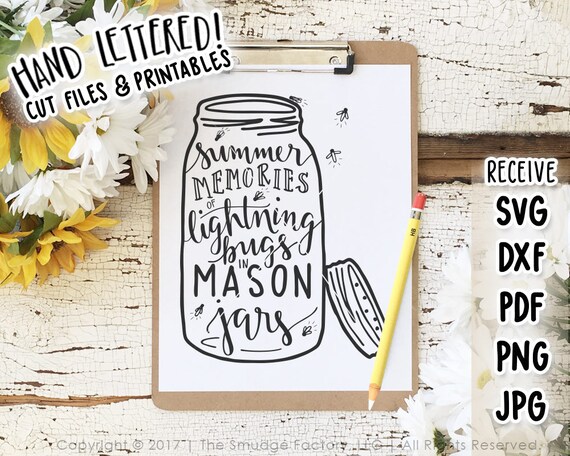 HAND LETTERED!
CUT FILES & PRINTABLES
summer
MEMORIES
OF
lightning
bugs
IN
MASON
jars
HB
RECEIVE
SVG
DXF
PDF
PNG
JPG
Copyright © 2017 | The Smudge Factory, LLC | All Rights Reserved.